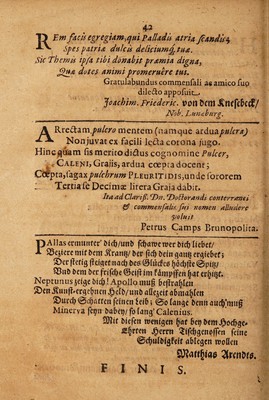 42
REm facis egregiam, qui Palladis atria scandis;
Spes patriæ dulcis deliciumq́; tuæ.
Sic Themis ipsa tibi donabit præmia digna,
Quæ dotes animi promeruêre tui.
Gratulabundus commensali ac amico suo
dilecto apposuit.
Joachim. Friederic. von dem Knesebeck/
Nob. Luneburg.
ARrectam, pulcra mentem (namque ardua pulcra)
Non juvat ex facili lecta corona jugo.
Hinc quam sis merito dictus cognomine Pulcer,
CALENI, Graiis, ardua cœpta docent;
Cœpta, sagax pulchrum PLEURITIDIS, unde sororem
Tertia se Decimæ litera Graja dabit.
Ita ad Clariss. Dn. Doctorandi conterranei
& commensalis sui nomen alludere
voluit
Petrus Camps Brunopolita.
PAllas ermunter' dich/ und schaw wer dich liebet/
Beziere mit dem Krantz/ der sich dein gantz ergiebet;
Der stetig steiget nach des Glückes höchste Spitz/
Und dem der frische Geist im kämpffen hat erhitzt.
Neptunus zeige dich! Apollo muß bestrahlen
Den Kunst-ergebnen Held/ und allezeit abmahlen
Durch Schatten seinen Leib; So lange denn auch muß
Minerva seyn dabey/ so lang' Calenius.
Mit diesen wenigen hat bey dem Hochge-
Ehrten Herrn Tischgenossen seine
Schuldigkeit ablegen wollen
Matthias Arendts.
FINIS.